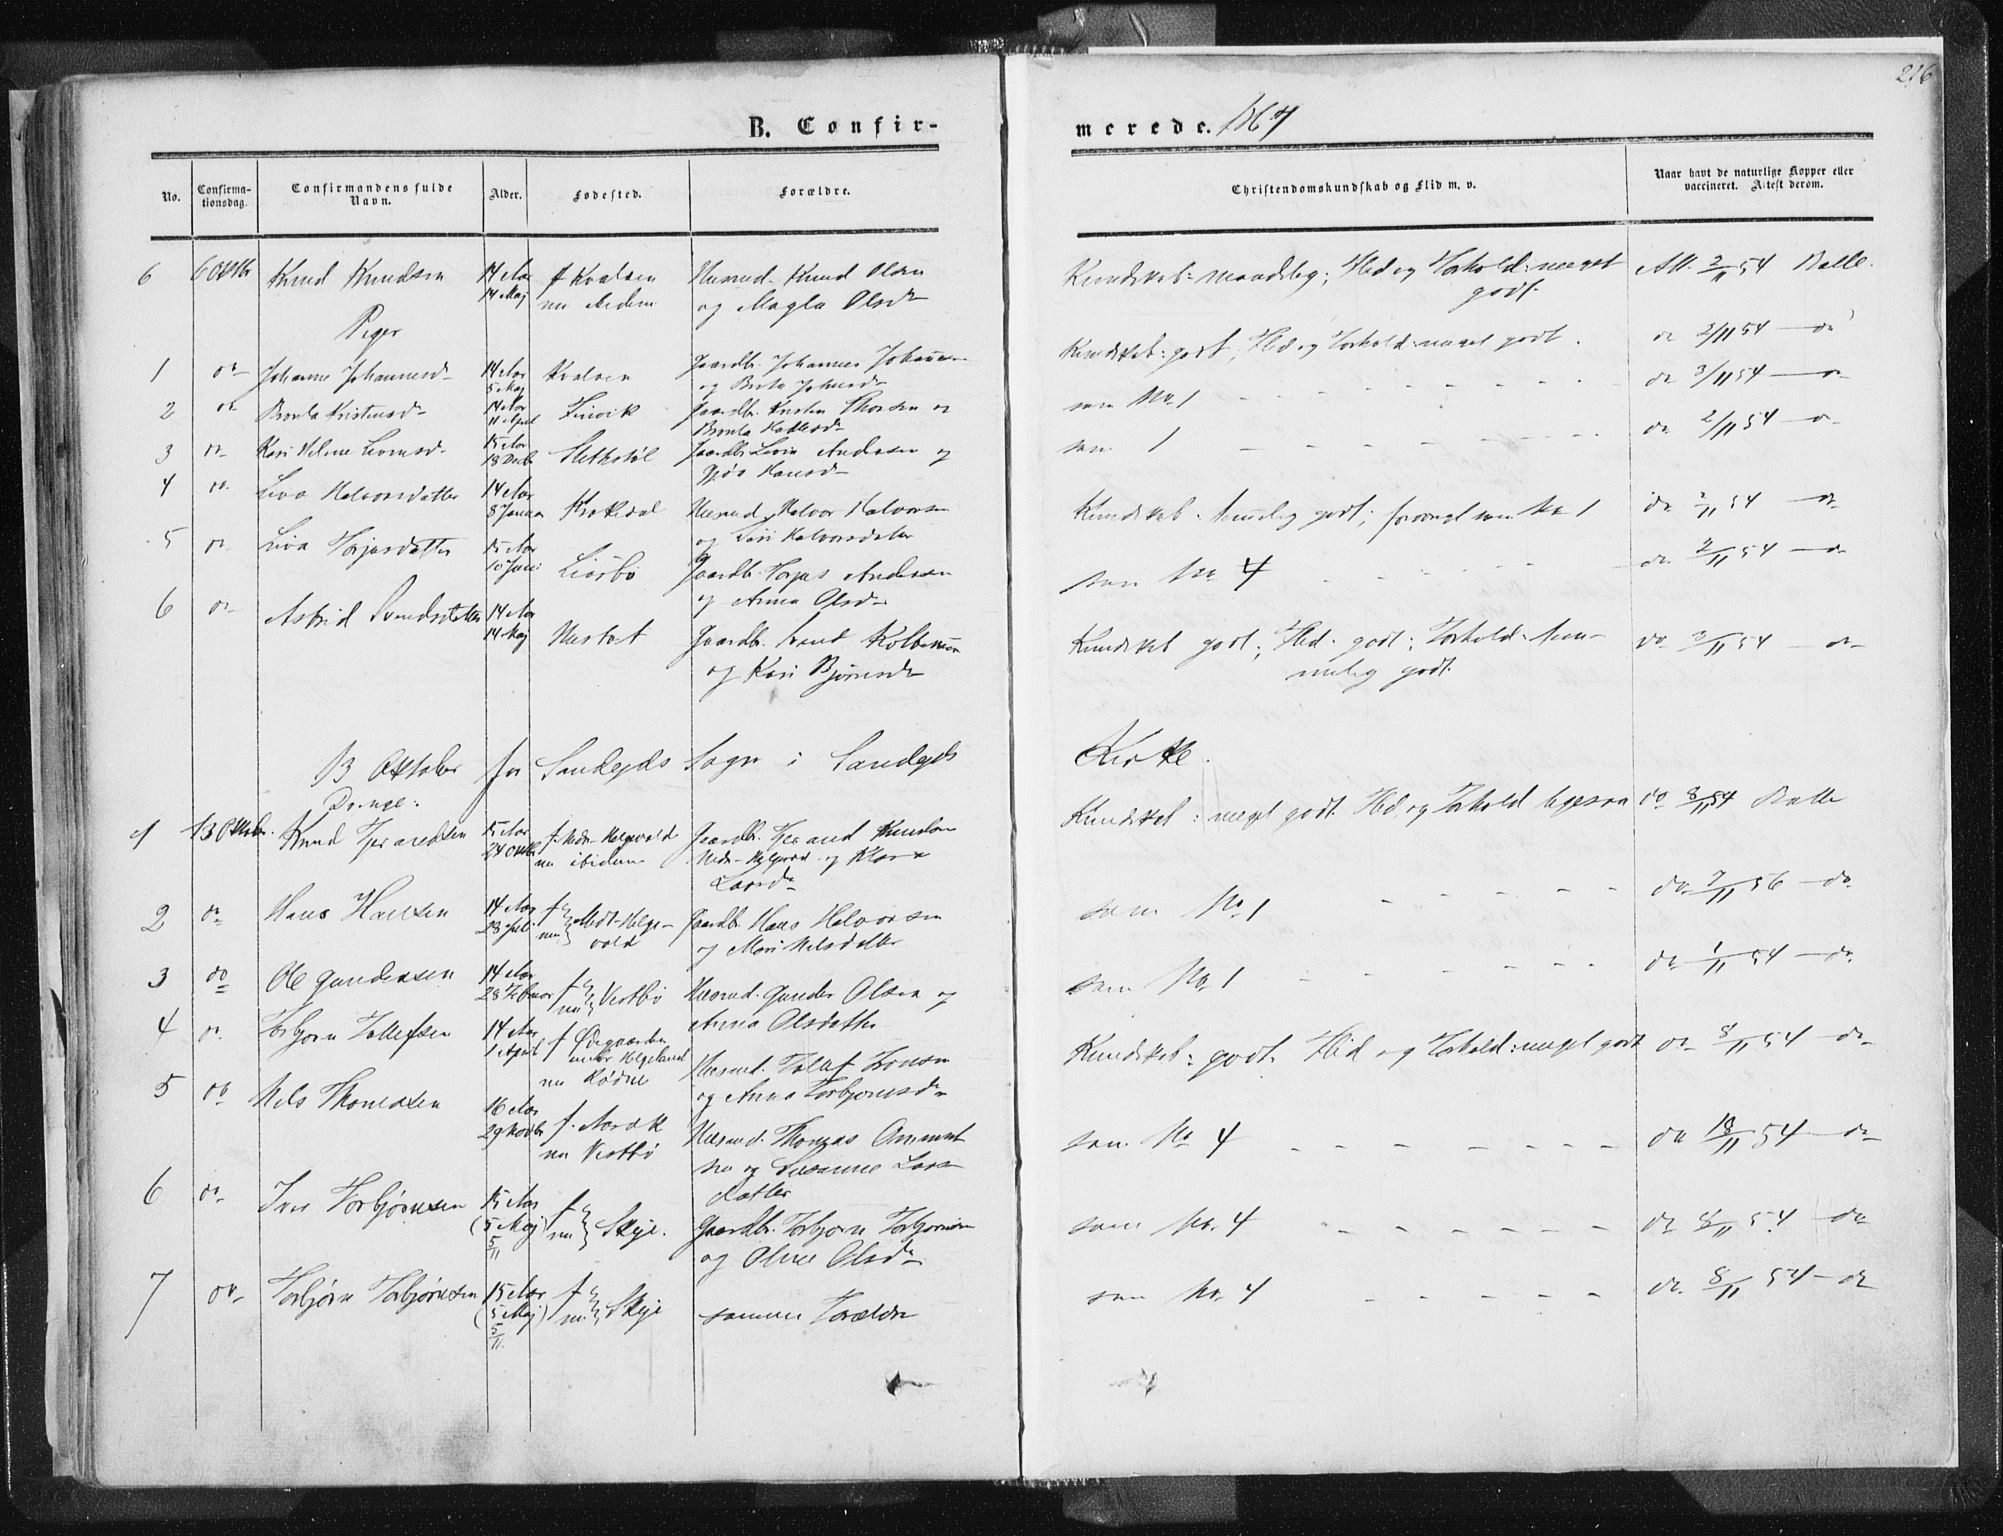 216
B. Confir-
merede. 1867
No.
Confirma-
tionsdag.
Confirmandens fulde
Navn.
Alder.
Fødested.
Forældre.
Christendomskundskab og Flid m. v.
Naar havt de naturlige Kopper eller
vaccineret. Attest derom.
6 6 Oktb Knud Knudsen 14 Aar f Kvalen Husmd. Knud Olsen Kundskab: maadelig; Flid og Forhold: meget Att. 2/11 54 Balle.
14 Maj nu og Magla Olsd godt.
Piger
1 do Johanne Johannesd 14 Aar Kvalen Gaardbr. Johannes Kundskab: godt; Flid og Forhold: meget godt. do 2/11 54 do
5 Maj og Berta
2 do Kristensd 14 Aar Gaardbr. Kristen Thorsen og som No 1 do 3/11 54 do
11 April
3 do Kari 15 Aar Gaardbr. Andersen og som 1 do 2/11 54 do
18 Decb Hansd
4 do Liva Halvorsdatter 14 Aar Krokedal Husmd Halvor Halvorsen Kundskab: temmelig godt; forøvrigt som No 1 do 2/11 54 do
8 Januar og Siri Halvorsdatter
5 do Liva Torjusdatter 15 Aar Gaardbr. Torjus Andersen som No 4 do 2/11 54 do
og Anna Olsd
6 do Astrid Svendsdatter 14 Aar Gaardbr. Svend Kolbensen Kundskab godt; Flid: godt; Forhold: tem- do 2/11 54 do
14 Maj og Kari Bjørnsd melig godt.
13 Oktober for Sandejds Sogn i Sandejds Kirke.
Drenge:
1 13 Oktober. Knud Tjerandsen 15 Aar f. Nedr-Helgevold Gaardbr. Tjerand Knudsen Kundskab: meget godt. Flid og Forhold ligesaa do 8/11 54 Balle
24 Oktb nu ibidem og Klara
Larsd
2 do Hans Hansen 14 Aar f nu Midt-Helge- Gaardbr Hans Halvorsen som No 1 do 7/11 56 do
vold og Mari Nilsdatter
3 do Ole Gundersen 14 Aar f nu Vestbø Husmd. Gunder Olsen og som No 1 do 1/11 54 do
28 Februar Anna Olsdatter
4 do Torbjørn Tollefsen 14 Aar f Ødegaarden Husmd. Kundskab: godt. Flid og Forhold: meget godt do 8/11 54 do
1 April under Helgeland og Anna Torbjørnsd
nu Rødne
5 do Nils Thomassen 16 Aar Husmd. Thomas som No 4 do 18/11 54 do
29 Novbr nu Vestbø og Susanne Lars
datter
6 do Iver Torbjørnsen 15 Aar f nu Skeje. Gaardbr. Torbjørn Torbjørnsen som No. 4 do 8/11 54 do
(5 Maj) og Oline Olsd
5/11
7 do Torbjørn Torbjørnsen 15 Aar f nu Skeje samme Forældre som No. 4 do 8/11 54 do
(5 Maj)
5/11.